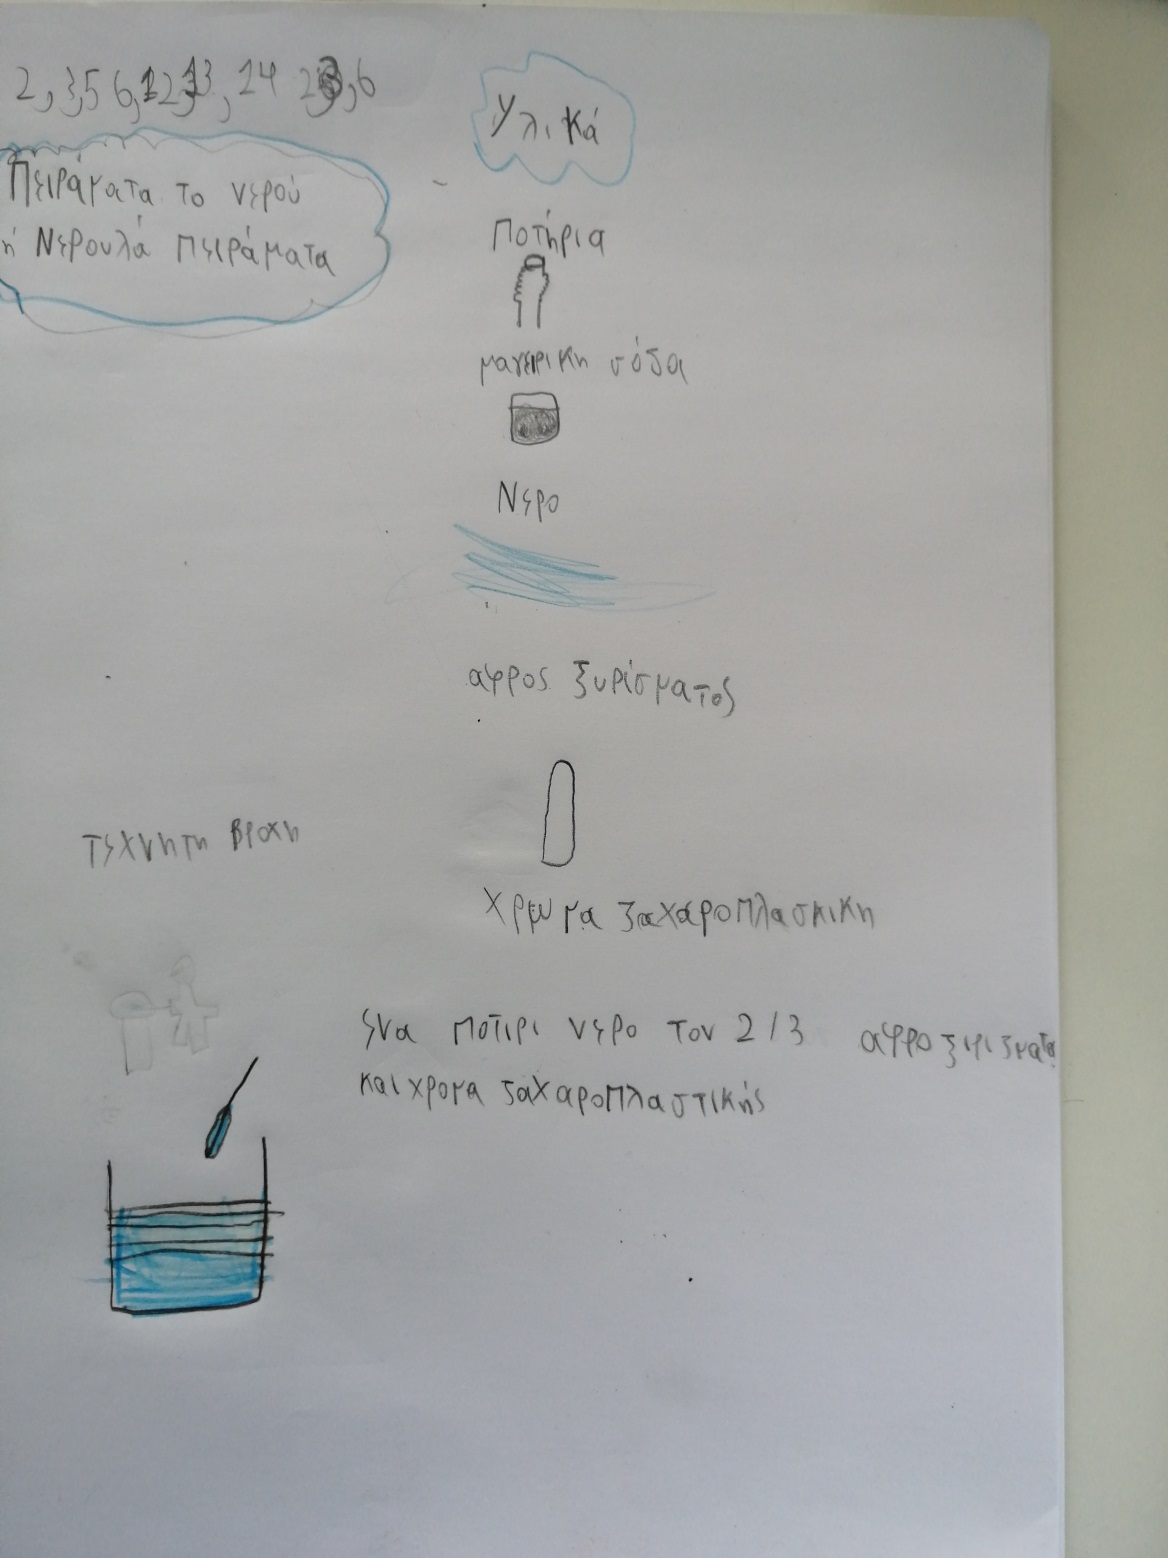 2, 3,5 6,12,13, 14 23,6
Πειράματα το νερού
ή Νερουλά πειράματα
Υλικά
Ποτήρια
μαγειρικη σόδα
Νερο
αφρος ξυρίσματος
Χρωμα ζαχαροπλασκικη
τεχνητη βροχη
ενα ποτιρι νερο τον 2/3 αφρο ξιριζματα
και χρομα ζαχαροπλαστικής